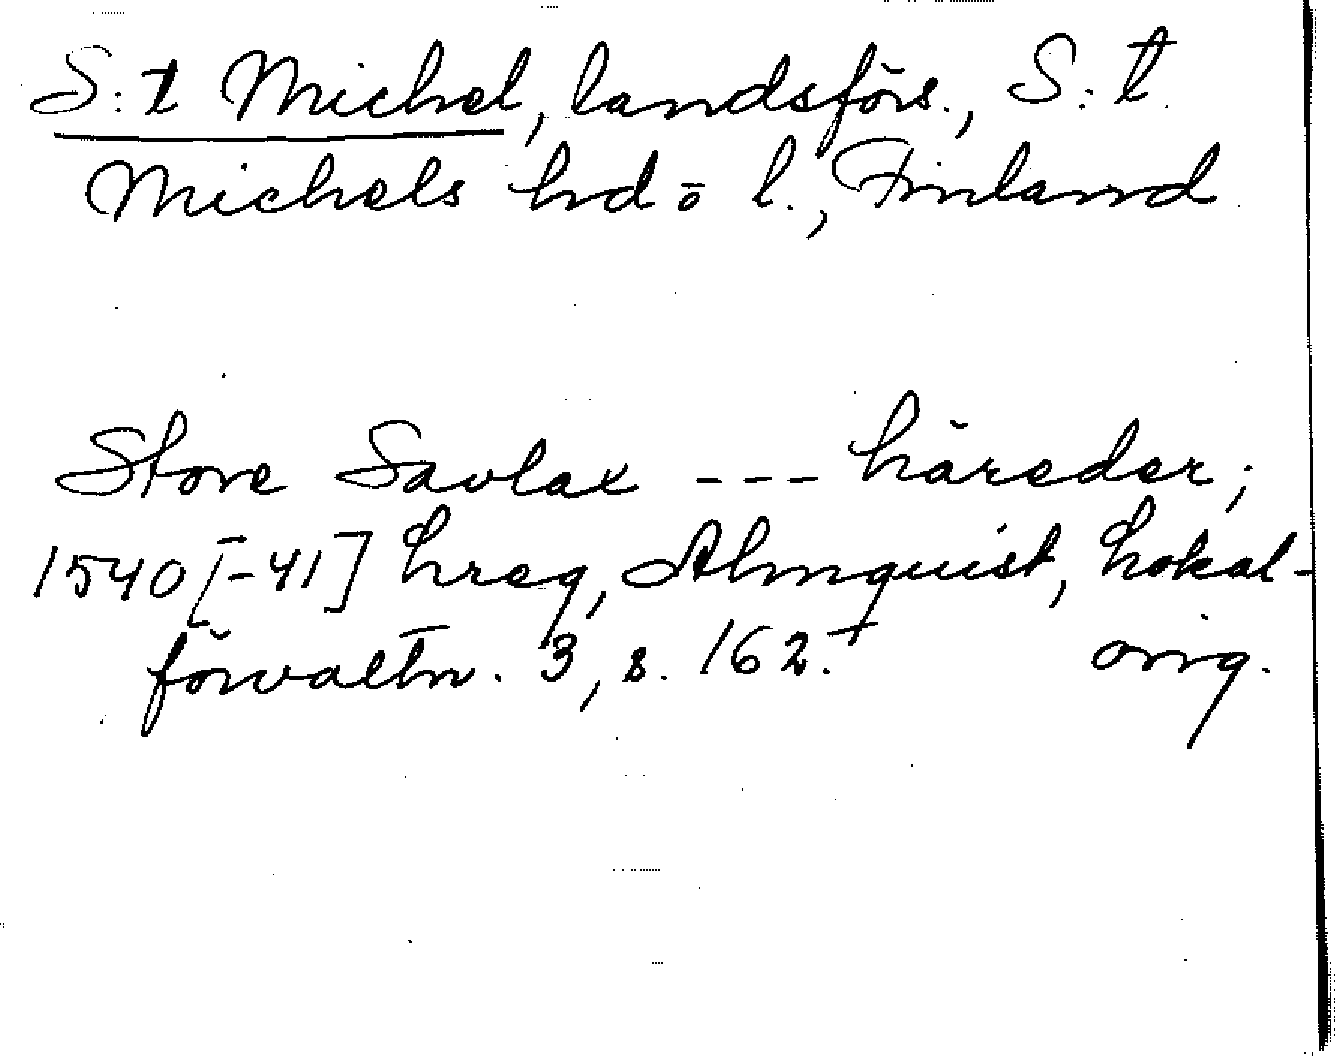 S:t Michel, landsförs., S:t
Michels hd o l., Finland
Store Savlax --- häreder;
1540[-41] hreg, Almquist, Lokal-
förvaltn. 3, s. 162.† orig.